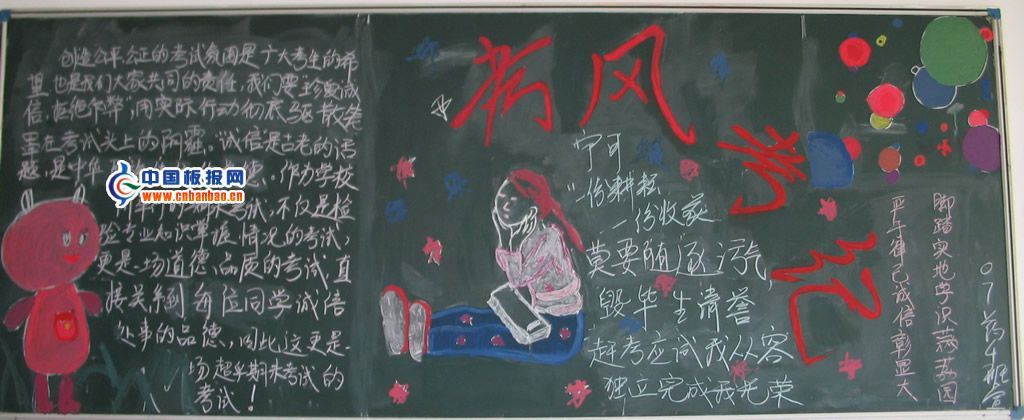 创造公平公正的考试氛围是广大考生的希
望也是我们大家共同的责任,我们要"珍爱诚
信,拒绝作弊",用实际行动彻底驱散笼
罩在考试头上的阴霾。诚信是古老的话
题,是中华
德。作为学校
不仅是检
验专业知识掌握情况的考试,
更是一场道德品质的考试,直
接关系到每位同学诚信
处事的品德,因此这更是一
场超乎期末考试的
考试!
中国板报网
www.cnbanbao.cn
考风
考纪
宁可
一份耕耘
一份收获
莫要随逐污气
毁毕生清誉
赶考应试我从容
独立完成我光荣
脚踏实地学识
严于律己诚信彰显大